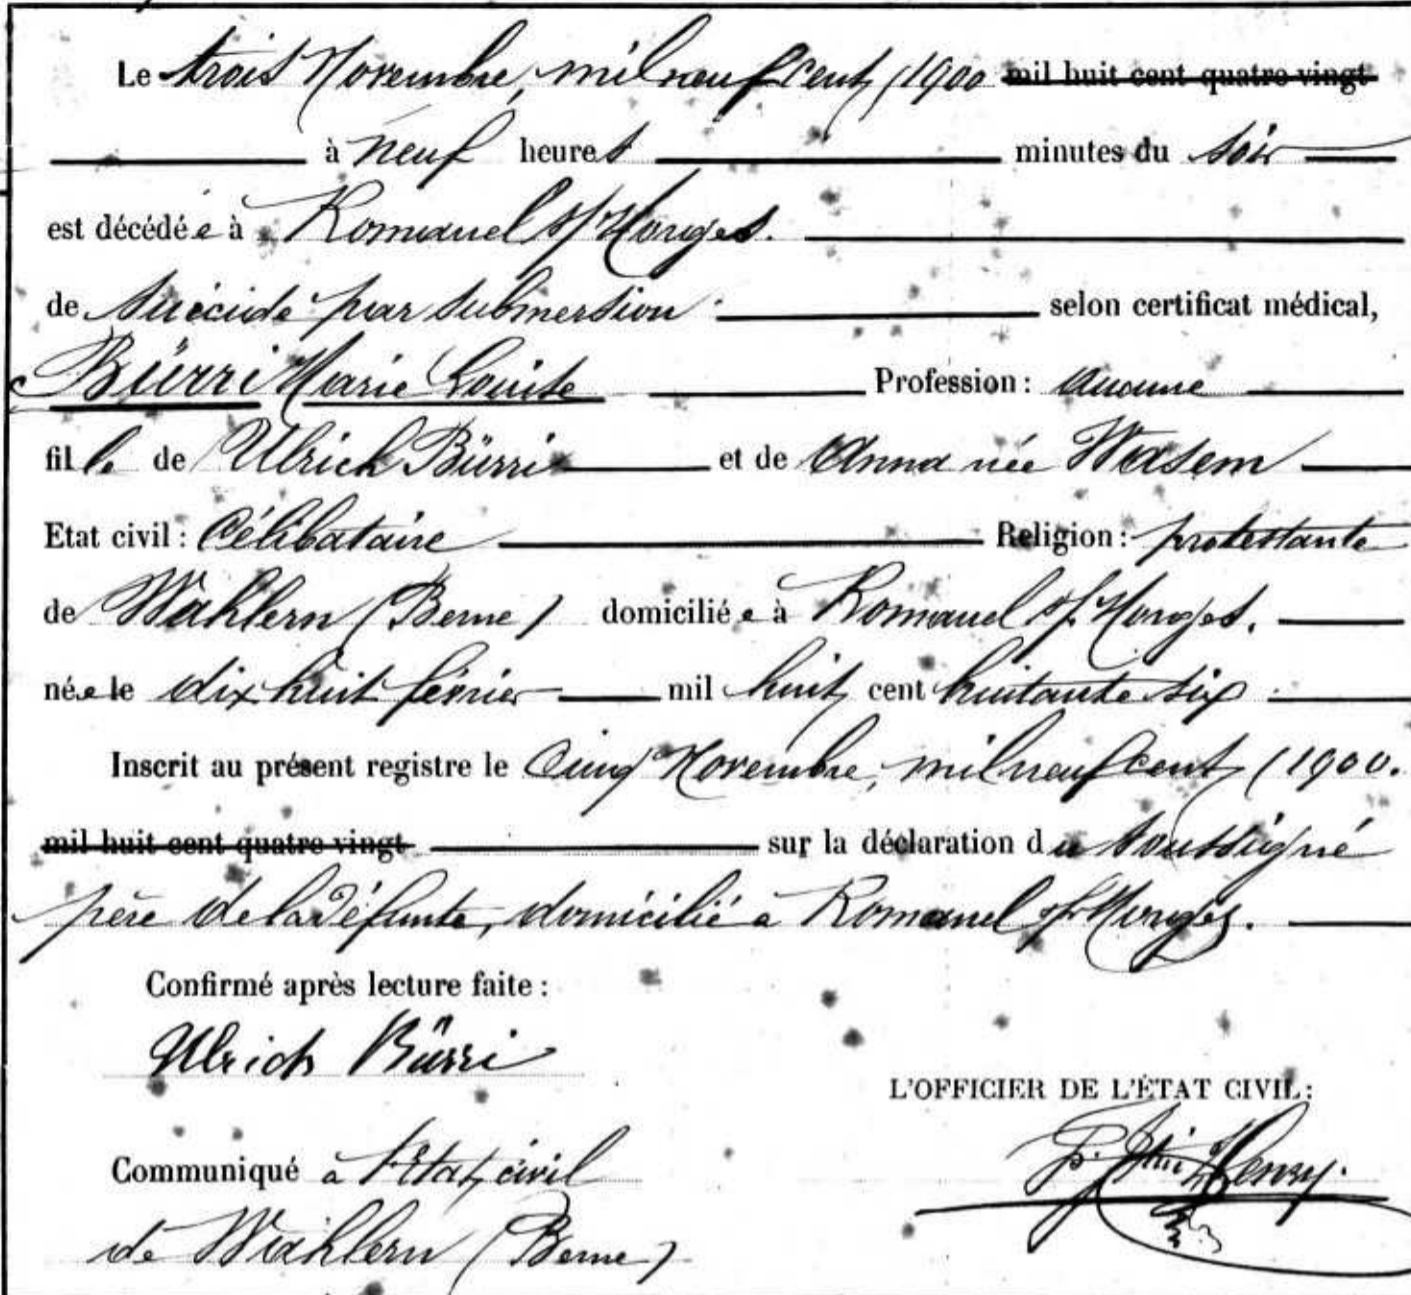 Le trois Novembre, mil neuf cent (1900 mil huit cent quatre vingt
à neuf heures minutes du soir
est décédée à Romanel s/ Morges.
de Suicide par submersion selon certificat médical,
Bürri Marie Louise Profession : aucune
fille de Ulrich Bürri et de Anna née Wasem
Etat civil : Célibataire Religion : protestante
de Wahlern (Berne) domiciliée à Romanel s/ Morges.
née le dix huit février mil huit cent huitante six
Inscrit au présent registre le Cinq Novembre, mil neuf cent (1900.
mil huit cent quatre vingt sur la déclaration du soussigné
père de la défunte, domicilié à Romanel s/ Morges.
Confirmé après lecture faite :
Ulrich Bürri
L'OFFICIER DE L'ÉTAT CIVIL :
Henry.
Communiqué à l'État civil
de Wahlern (Berne)